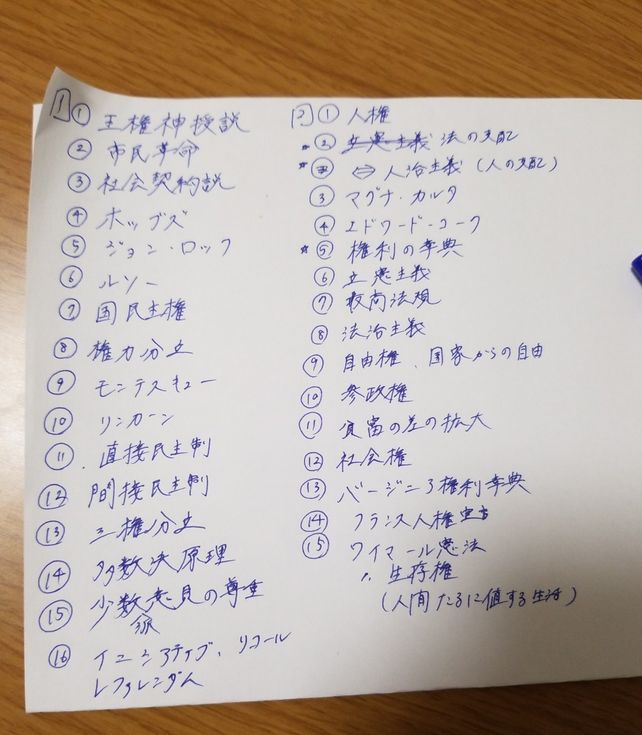 1 ① 王権神授説
② 市民革命
③ 社会契約説
④ ホッブズ
⑤ ジョン・ロック
⑥ ルソー
⑦ 国民主権
⑧ 権力分立
⑨ モンテスキュー
⑩ リンカーン
⑪ 直接民主制
⑫ 間接民主制
⑬ 三権分立
⑭ 多数決原理
⑮ 少数意見の尊重
派
⑯ イニシアティブ、リコール
レファレンダム
2 ① 人権
* ② 立憲主義 法の支配
* ⇔ 人治主義(人の支配)
③ マグナ・カルタ
④ エドワード・コーク
☆ ⑤ 権利の章典
⑥ 立憲主義
⑦ 最高法規
⑧ 法治主義
⑨ 自由権、国家からの自由
⑩ 参政権
⑪ 貧富の差の拡大
⑫ 社会権
⑬ バージニア権利章典
⑭ フランス人権宣言
⑮ ワイマール憲法
生存権
(人間たるに値する生活)